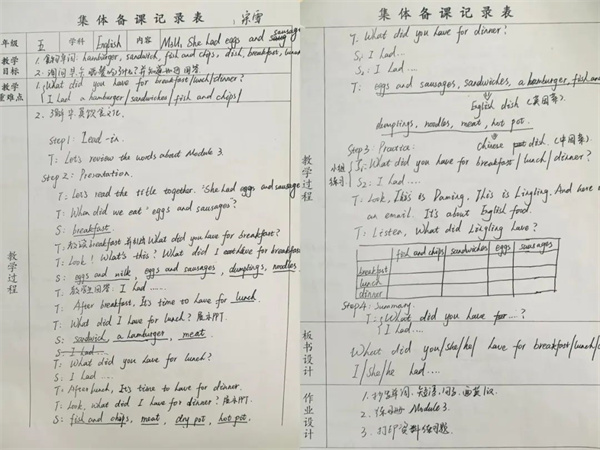 集体备课记录表
年级 五 学科 English 内容 M3U1 She had eggs and sausages
教学目标 hamburger, sandwich, fish and chips, dish, breakfast, lunch
教学重难点 1. What did you have for breakfast/lunch/dinner?
I had a hamburger/sandwiches/fish and chips/
2. 了解中英饮食文化.
Step1: Lead-in.
T: Let's review the words about Module 3.
Step2: Presentation.
T: Let's read the title together. 'She had eggs and sausages
T: When did we eat 'eggs and sausages?
S: breakfast.
T: breakfast What did you have for breakfast?
T: Look! What's this? What did I have for breakfast
S: eggs and milk, eggs and sausages, dumplings, noodles
T: I had ....
T: After breakfast, It's time to have for lunch.
T: What did I have for lunch? 展示PPT.
S: sandwich, a hamburger, meat.
S: I had ....
T: What did you have for lunch?
S: I had ....
T: After lunch, It's time to have for dinner.
T: Look, what did I have for dinner? 展示PPT.
S: fish and chips, meat, dry pot, hot pot.
教学过程
集体备课记录表
7. What did you have for dinner?
S1: I had ....
S2: I had ....
T: eggs and sausages, sandwiches, a hamburger, fish and
English dish (英国菜).
dumplings, noodles, meat, hot pot.
Chinese dish. (中国菜).
Step3: Practice:
小组练习 S1: What did you have for breakfast/lunch/dinner?
S2: I had ....
T: Look, This is Daming, This is Lingling. And here
an email. It's about English food.
T: Listen, What did Lingling have?
fish and chips sandwiches eggs sausages
breakfast
lunch
dinner
Step4: Summary.
T: What did you have for....?
I had ....
教学过程
板书设计
What did you/she/he/ have for breakfast/lunch/
I/she/he had....
作业设计
2. 练习册 Module 3.